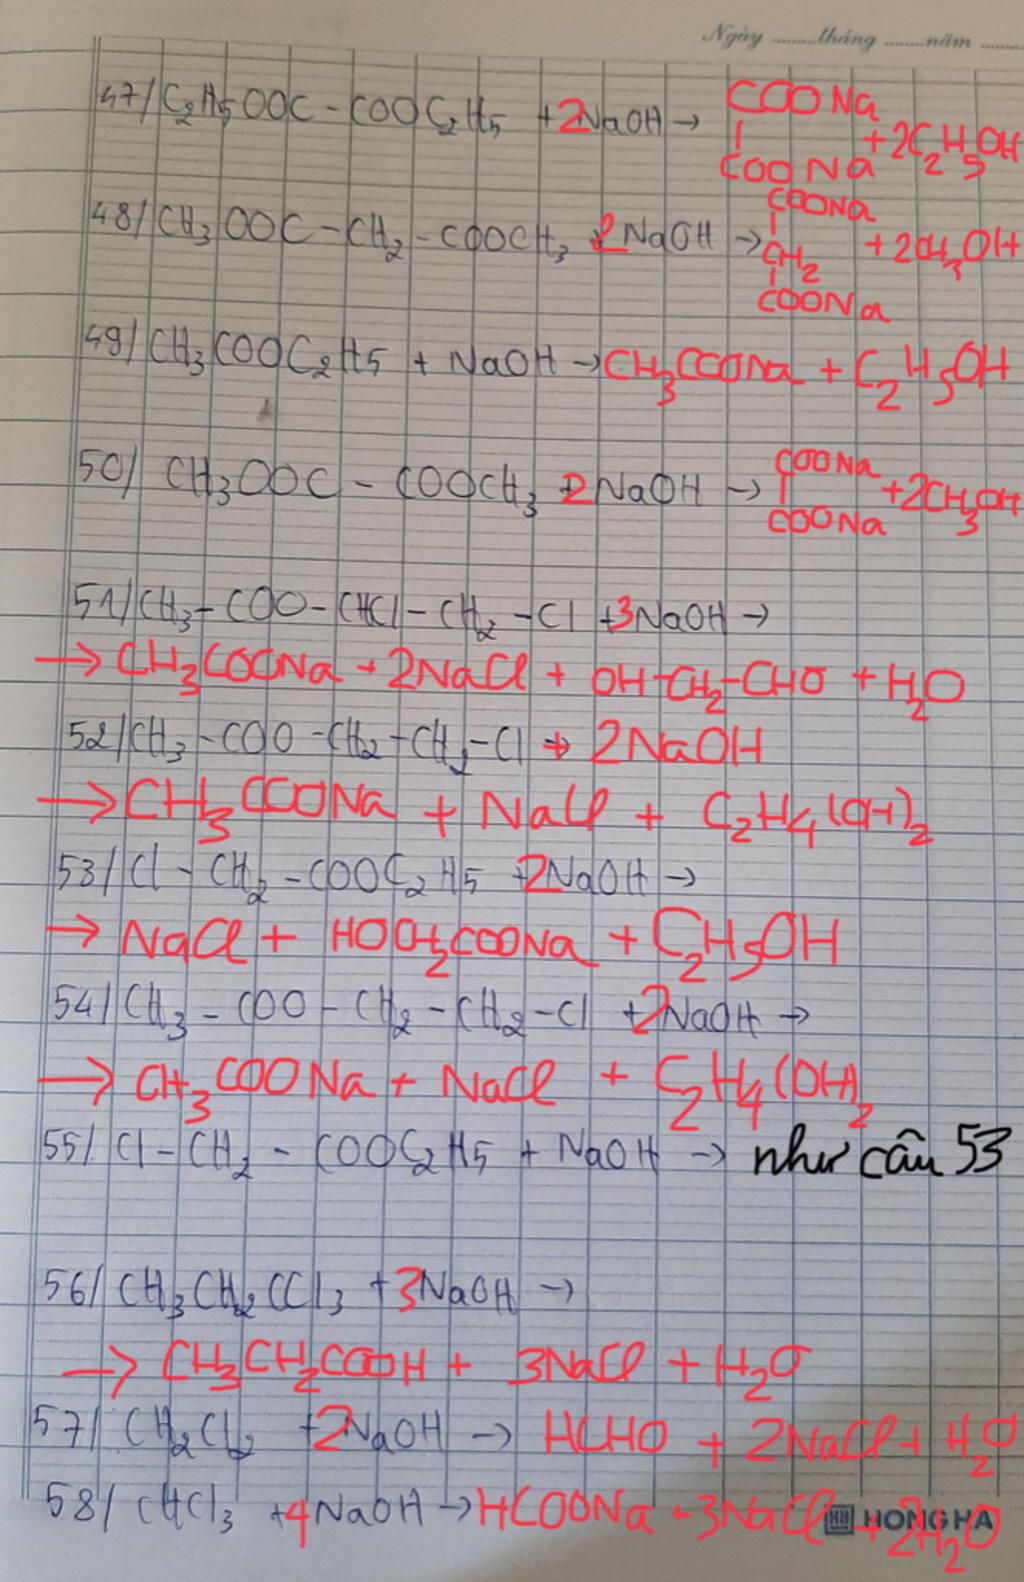 Ngày ........tháng .......năm ........
47/ C2H5OOC - COOC2H5 + 2NaOH → COONa
|
COONa + 2C2H5OH
48/ CH3OOC - CH2 - COOCH3 2NaOH → COONa
|
CH2 + 2CH3OH
|
COONa
49/ CH3COOC2H5 + NaOH → CH3COONa + C2H5OH
50/ CH3OOC - COOCH3 2NaOH → COONa
| + 2CH3OH
COONa
51/ CH3 - COO - CHCl - CH2 - Cl + 3NaOH →
→ CH3COONa + 2NaCl + OH-CH2-CHO + H2O
52/ CH3 - COO - CH2 - CH2 - Cl + 2NaOH
→ CH3COONa + NaCl + C2H4(OH)2
53/ Cl - CH2 - COOC2H5 + 2NaOH →
→ NaCl + HOCH2COONa + C2H5OH
54/ CH3 - COO - CH2 - CH2 - Cl + 2NaOH →
→ CH3COONa + NaCl + C2H4(OH)2
55/ Cl - CH2 - COOC2H5 + NaOH → như câu 53
56/ CH3CH2CCl3 + 3NaOH →
→ CH3CH2COOH + 3NaCl + H2O
57/ CH2Cl2 + 2NaOH → HCHO + 2NaCl + H2O
58/ CHCl3 + 4NaOH → HCOONa + 3NaCl + 2H2O
HH HONG HA